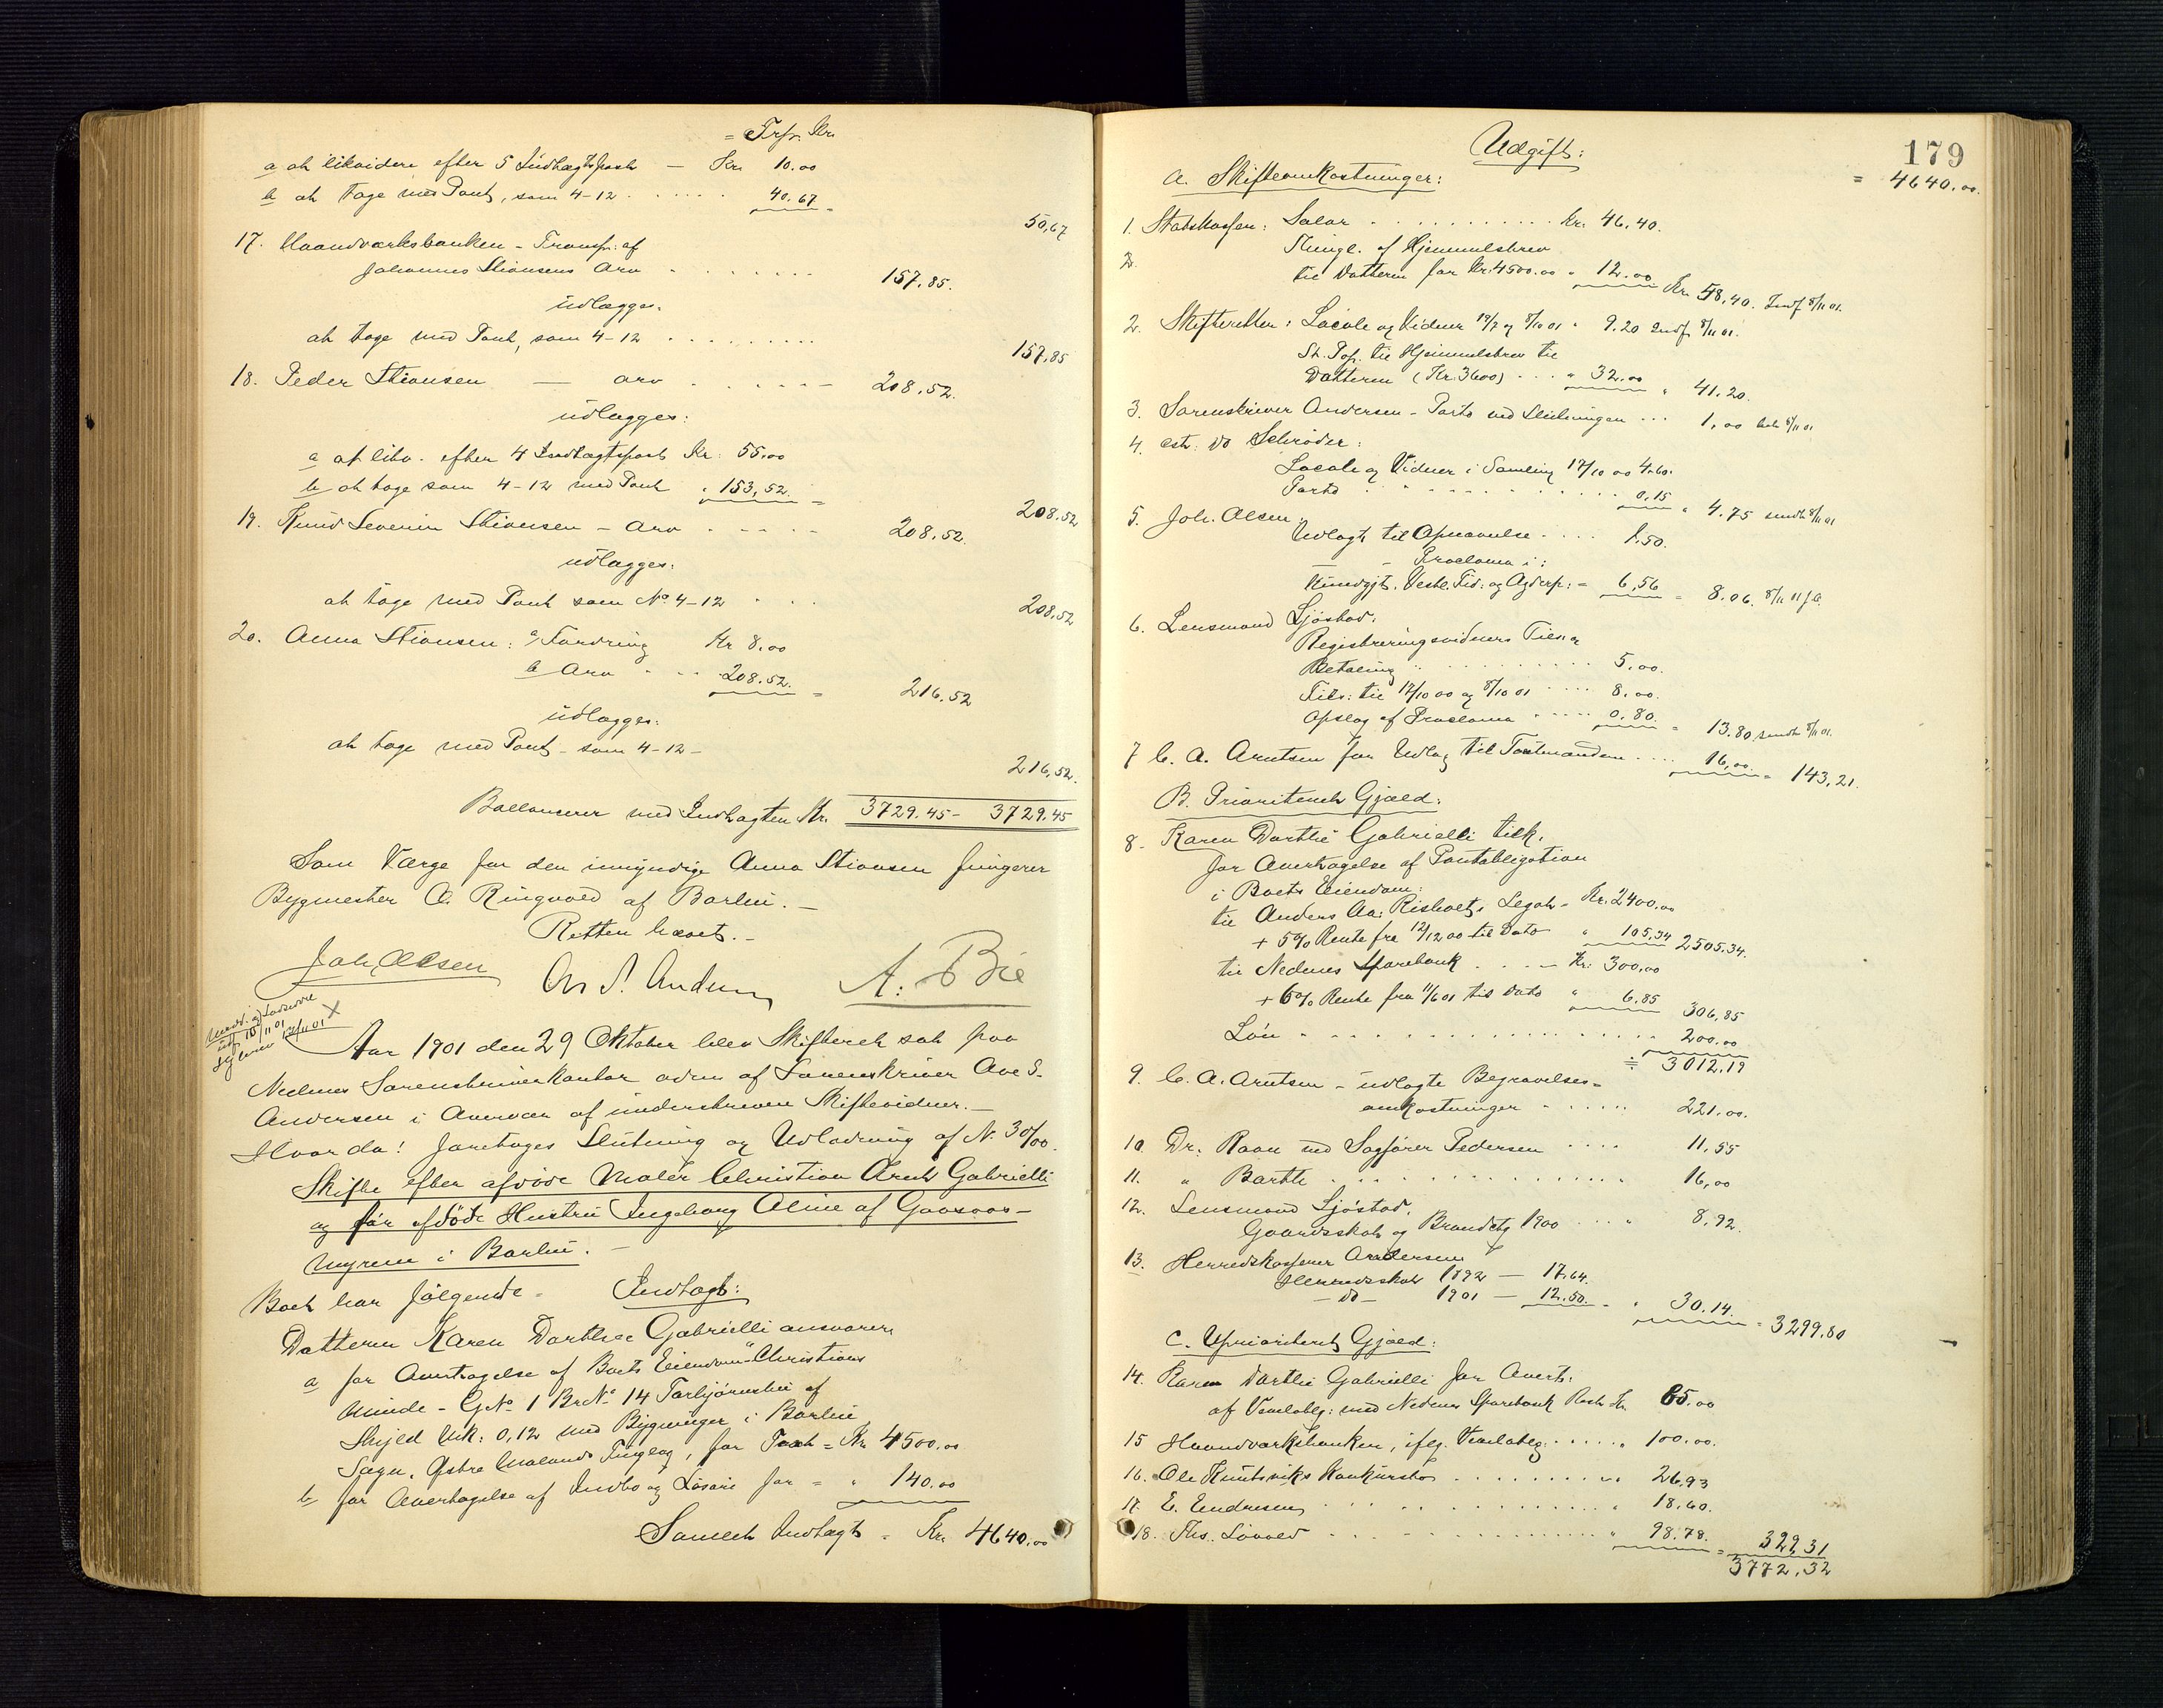 = Trsp. Kr.
a at likvidere efter 5 Indtægtspost — Kr. 10.00
b at tage med Pant, som 4-12 . . . . . 40.67 =
50,67
17. Haandværksbanken - Transp. af
Johannes Stiansens Arv . . . . . . 157.85.
udlægges.
at tage med Pant, som 4-12 . . . . . . . .
157,85
18. Peder Stiansen — Arv . . . . . — 208.52.
udlægges:
a at likv. efter 4 Indtægtspost Kr. 55.00
b at tage som 4-12 med Pant " 153,52. =
208.52
19. Knud Severin Stiansen - Arv . . . . . 208.52.
udlægges:
at tage med Pant som No 4-12 . . .
208.52
20. Anna Stiansen: a/ Fordring Kr 8.00
b Arv . . . 208.52. = 216.52
udlægges:
at tage med Pant - som 4-12 -
216,52.
Ballancerer med Indtægten Kr. 3729.45 - 3729.45
Som Værge for den umyndige Anna Stiansen fungerer
Bygmester O. Ringvold af Barbu. -
Retten hævet. -
Joh Olsen Ove S. Andersen A. Bie
Aar 1901 den 29 Oktober blev Skifteret sat paa
Nedenes Sorenskriverkontor adm. af Sorenskriver Ove S.
Andersen i Overvær af underskrevne Skiftevidner. -
Hvorda! foretoges Slutning og Udlodning af No 30/00.
Skifte efter afdøde Maler Christian Arent Gabrielli
og før afdøde Hustru Ingeborg Oline af Gaasaas-
myren i Barbu. -
Boet har følgende - Indtægt:
Datteren Karen Dorthea Gabrielli ansvarer
a for Overtagelse af Boets Eiendom "Christians
Minde - GNo 1 BrNo 14 Torbjørnsbu af
Skyld Mk: 0,12 med Bygninger i Barbu
Sogn, Østre Molands Tinglag, for Taxt = Kr 4500.00
b for Overtagelse af Indbo og Løsøre for = " 140.00
Samlet Indtægt = Kr. 4640.00
179
Udgift:
= 4640.00.
A. Skifteomkostninger:
1. Statskassen: Salær . . . . . . . . . . Kr. 46,40.
2. Thingl. af Hjemmelsbrev
til Datteren for Kr. 4500.00 " 12.00 Kr. 58,40. Indf 8/11 01.
2. Skifteretten: Locale og Vidner 19/7 og 8/10 01 " 9.20 Indf 8/11 01.
St. Pap. til Hjemmelsbrev til
Datteren (Kr. 3600) . . . " 32.00 " 41.20.
3. Sorenskriver Andersen - Porto ved Slutningen . . . 1,00 bet 8/11 01
4. cst: do Schrøder:
Locale og Vidner i Samling 17/10 00 4.60.
Porto . . . . . . . . . . . 0,15 " 4.75 sendt 8/11 01
5. Joh. Olsen
Udlagt til Opnævnelse . . . . 1.50.
— - Proclama i:
Kundgjt. Vestl. Tid. og Agderp. = 6,56 = 8.06. 8/11
6. Lensmand Sjøstad.
Registreringsvidners Tils. og
Betaling . . . . . . . . . 5.00.
Tils: til 17/10 00 og 8/10 01 . . . . 8.00.
Opslag af Proclama . . . . . 0.80. = 13.80 sendt 8/11 01.
7 C. A. Arntsen for Udlæg til Taxtmændene . . . . 16,00. = 143,21.
B. Prioriteret Gjæld:
8. Karen Dorthe Gabrielli tilk.
for Overtagelse af Pantobligation
i Boets Eiendom:
til Anders Aa: Risholts Legat - Kr. 2400.00
+ 5% Rente fra 12/12 00 til Dato " 105.34 2505.34.
til Nedenes Sparebank . . . - Kr. 300.00
+ 6% Rente fra 11/6 01 til Dato " 6.85 306,85
Løn . . . . . . . . . . . . . . . 200.00
= 3012.19
9. C. A. Arntsen - udlagte Begravelses-
omkostninger . . . . . 221.00.
10 Dr. Raan ved Sagfører Pedersen . . . . 11,55
11. " Barth . . . . . . . . . . . . . . . . 16,00
12. Lensmand Sjøstad.
Gaardsskat og Brandctg 1900 . . . . " 8.92.
13. Herredskasserer Andersen
Herredsskat 1892 — 17.64.
— do — 1901 — 12.50. - " 30.14. = 3299.80
C. Uprioriteret Gjæld:
14. Karen Dorthe Gabrielli for Overt:
af Vexeloblg: med Nedenes Sparebank Rest Kr. 85.00
15 Haandværksbanken, ifлg. Vexelablg. . . . . . " 100.00.
16. Ole Knutsviks Konkursbo . . . . . . . . . " 26,93
17. E. Endresen . . . . . . . . . . . . " 18.60.
18. Ths. Løvold . . . . . . . . . . . . " 98.78. = 329,31
3772,32